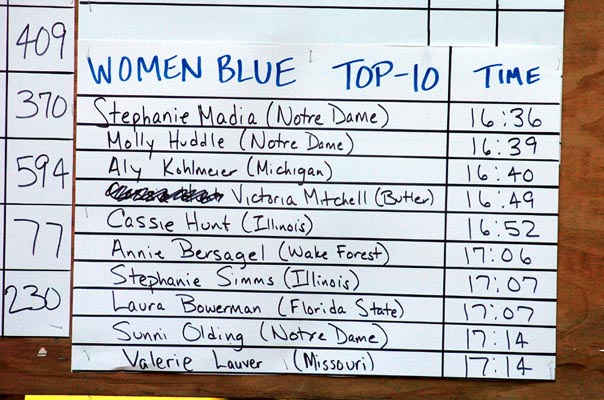 409
370
594
77
230
WOMEN BLUE TOP-10 TIME
Stephanie Madia (Notre Dame) 16:36
Molly Huddle (Notre Dame) 16:39
Aly Kohlmeier (Michigan) 16:40
Victoria Mitchell (Butler) 16:49
Cassie Hunt (Illinois) 16:52
Annie Bersagel (Wake Forest) 17:06
Stephanie Simms (Illinois) 17:07
Laura Bowerman (Florida State) 17:07
Sunni Olding (Notre Dame) 17:14
Valerie Lauver (Missouri) 17:14